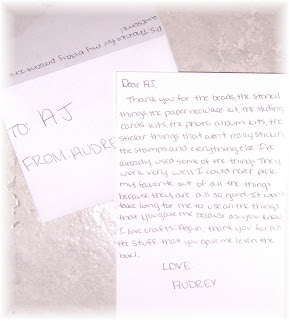 P.S. Thanks for my baby present it's
Awesome!
TO: AJ
FROM: AUDRE
Dear AJ,
Thank you for the beads, the stencil
things, the paper necklace kit, the sliding
cards kits, the photo album kits, the
sticker things that aren't really stickers,
the stamps and everything else. I've
already used some of the things. They
work very well. I could never pick
my favorite out of all the things
because they are all so good. It won't
take long for me to use all the things
that you gave me because as you know
I love crafts. Again, thank you for all
the stuff that you gave me (even the
box).
LOVE
AUDREY